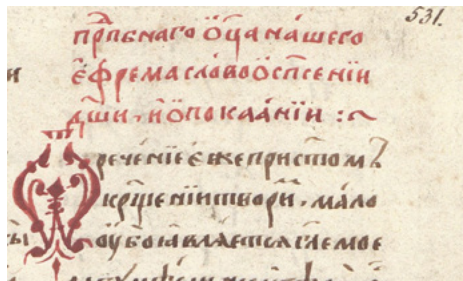 531.
прпⷣбнаго ѻ҆ц҃а на́шего
є҆фрема сло́во ѡ҆ сп҃се́нїи
дш҃и, и҆ ѡ҆ покаѧ́нїи :~
Ѿрече́нїе є҆́же при ст҃ѡмъ
кр҃ще́нїи твори́м, ма́ло
ѹ҆́бо ꙗ҆влѧ́етсѧ гл҃емое